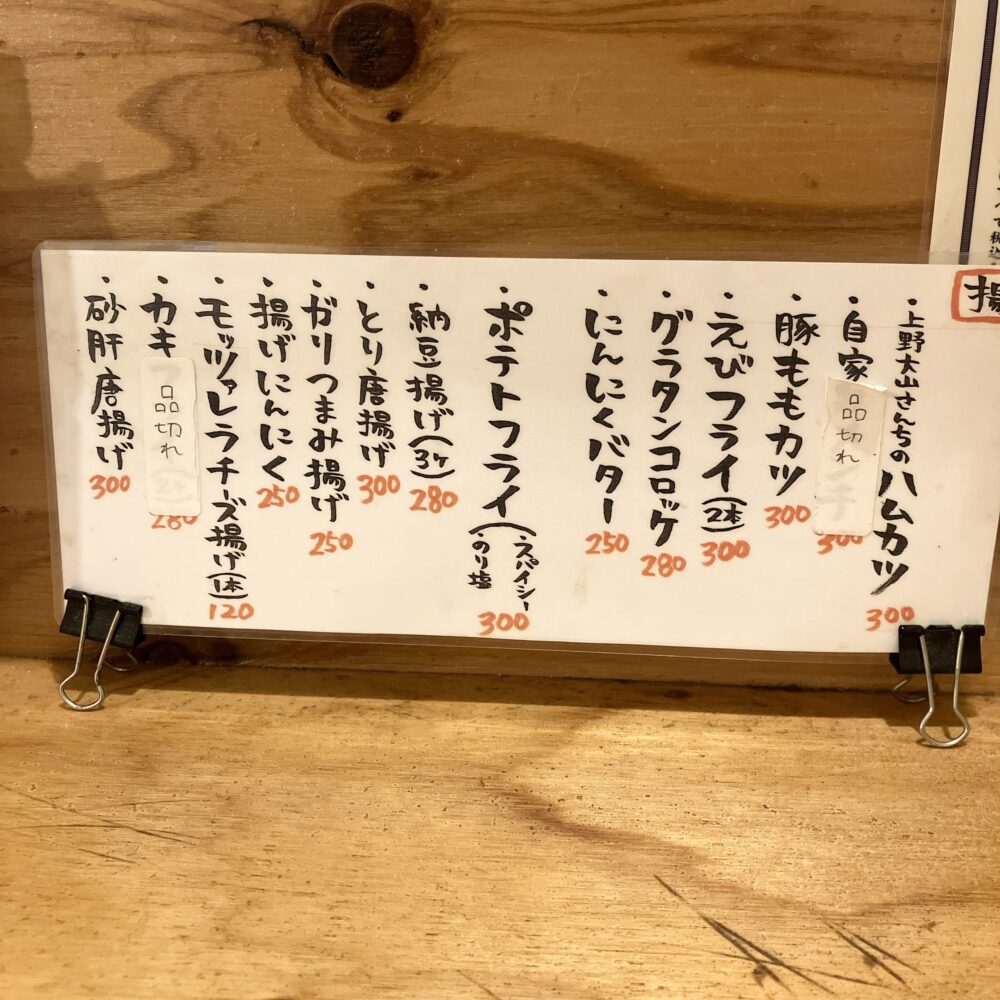 揚
・上野大山さんちのハムカツ
300
・自家
品切れ
ンチ
300
・豚ももカツ
300
・えびフライ(2本)
300
・グラタンコロッケ
280
・にんにくバター
250
・ポテトフライ
・スパイシー
・のり塩
300
・納豆揚げ(3ヶ)
280
・とり唐揚げ
300
・ガリつまみ揚げ
250
・揚げにんにく
250
・モッツァレラチーズ揚げ(1本)
120
・カキ
品切れ
280
・砂肝唐揚げ
300